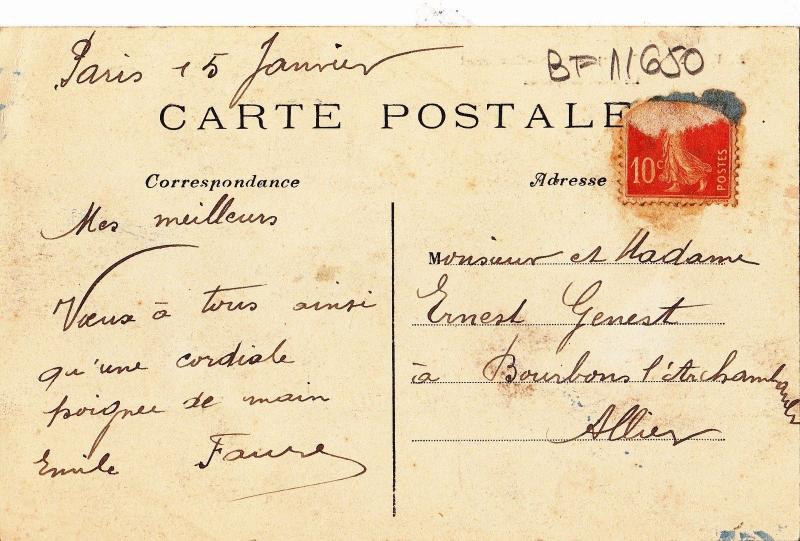 Paris 15 Janvier
BF 11/650
CARTE POSTALE
10c
POSTES
Correspondance
Adresse
Mes meilleurs
Vœux à tous ainsi
qu'une cordiale
poignée de main
Emile Faure
Monsieur et Madame
Ernest Genest
à Bourbons l'Archambault
Allier